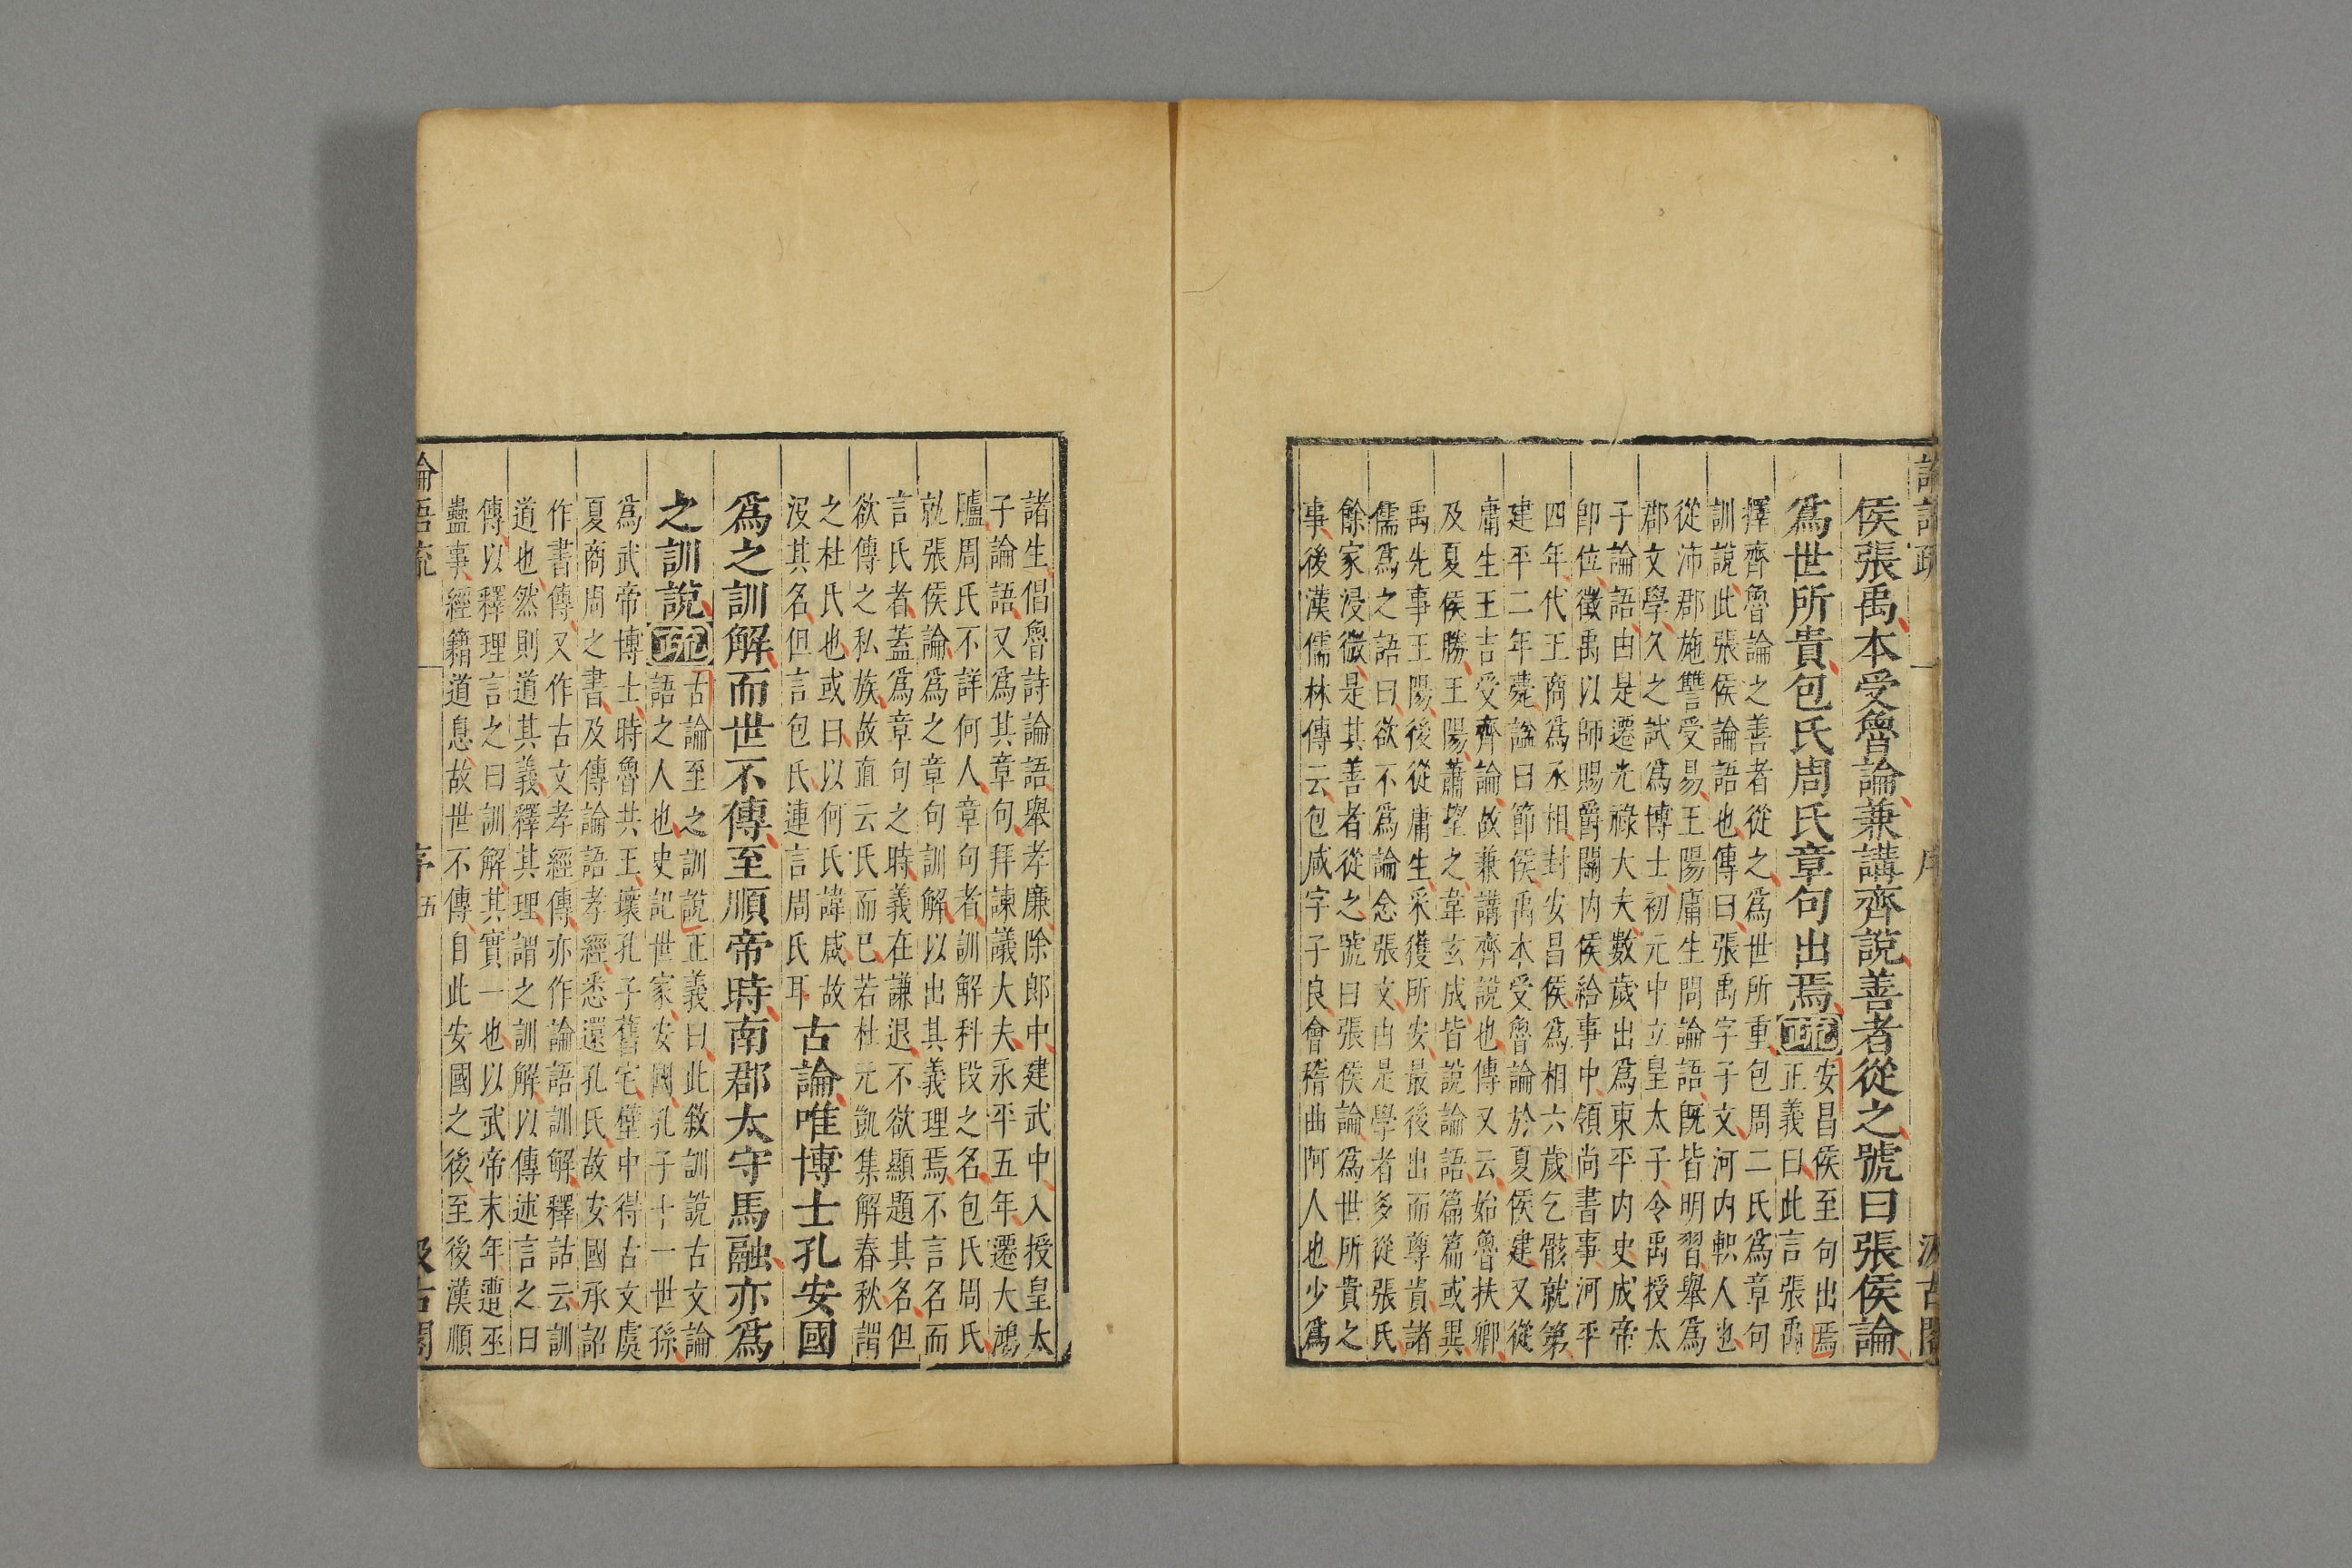 論語疏 一 序 汲古閣
侯張禹本受魯論兼講齊說善者從之號曰張侯論
爲世所貴包氏周氏章句出焉疏安昌侯至句出焉
正義曰此言張禹
擇齊魯論之善者從之爲世所重包周二氏爲章句
訓說此張侯論語也傳曰張禹字子文河内軹人也
從沛郡施讐受易王陽庸生問論語既皆明習舉爲
郡文學久之試爲博士初元中立皇太子令禹授太
子論語由是遷光祿大夫數歲出爲東平内史成帝
卽位徵禹以師賜爵關内侯給事中領尚書事河平
四年代王商爲丞相封安昌侯爲相六歲乞骸就第
建平二年薨謚曰節侯禹本受魯論於夏侯建又從
庸生王吉受齊論故兼講齊說也傳又云始魯扶卿
及夏侯勝王陽蕭望之韋玄成皆說論語篇篇或異
禹先事王陽後從庸生采獲所安最後出而尊貴諸
儒爲之語曰欲不爲論念張文由是學者多從張氏
餘家浸微是其善者從之號曰張侯論爲世所貴之
事後漢儒林傳云包咸字子良會稽曲阿人也少爲
諸生倡魯詩論語舉孝廉除郎中建武中入授皇太
子論語又爲其章句拜諫議大夫永平五年遷大鴻
臚周氏不詳何人章句者訓解科段之名包氏周氏
就張侯論爲之章句訓解以出其義理焉不言名而
言氏者蓋爲章句之時義在謙退不欲顯題其名但
欲傳之私族故直云氏而已若杜元凱集解春秋謂
之杜氏也或曰以何氏諱咸故
沒其名但言包氏連言周氏耳古論唯博士孔安國
爲之訓解而世不傳至順帝時南郡太守馬融亦爲
之訓說疏古論至之訓說正義曰此敘訓說古文論
語之人也史記世家安國孔子十一世孫
爲武帝博士時魯共王壞孔子舊宅壁中得古文虞
夏商周之書及傳論語孝經悉還孔氏故安國承詔
作書傳又作古文孝經傳亦作論語訓解釋詁云訓
道也然則道其義釋其理謂之訓解以傳述言之曰
傳以釋理言之曰訓解其實一也以武帝末年遭巫
蠱事經籍道息故世不傳自此安國之後至後漢順
論語疏 一 序 五 汲古閣